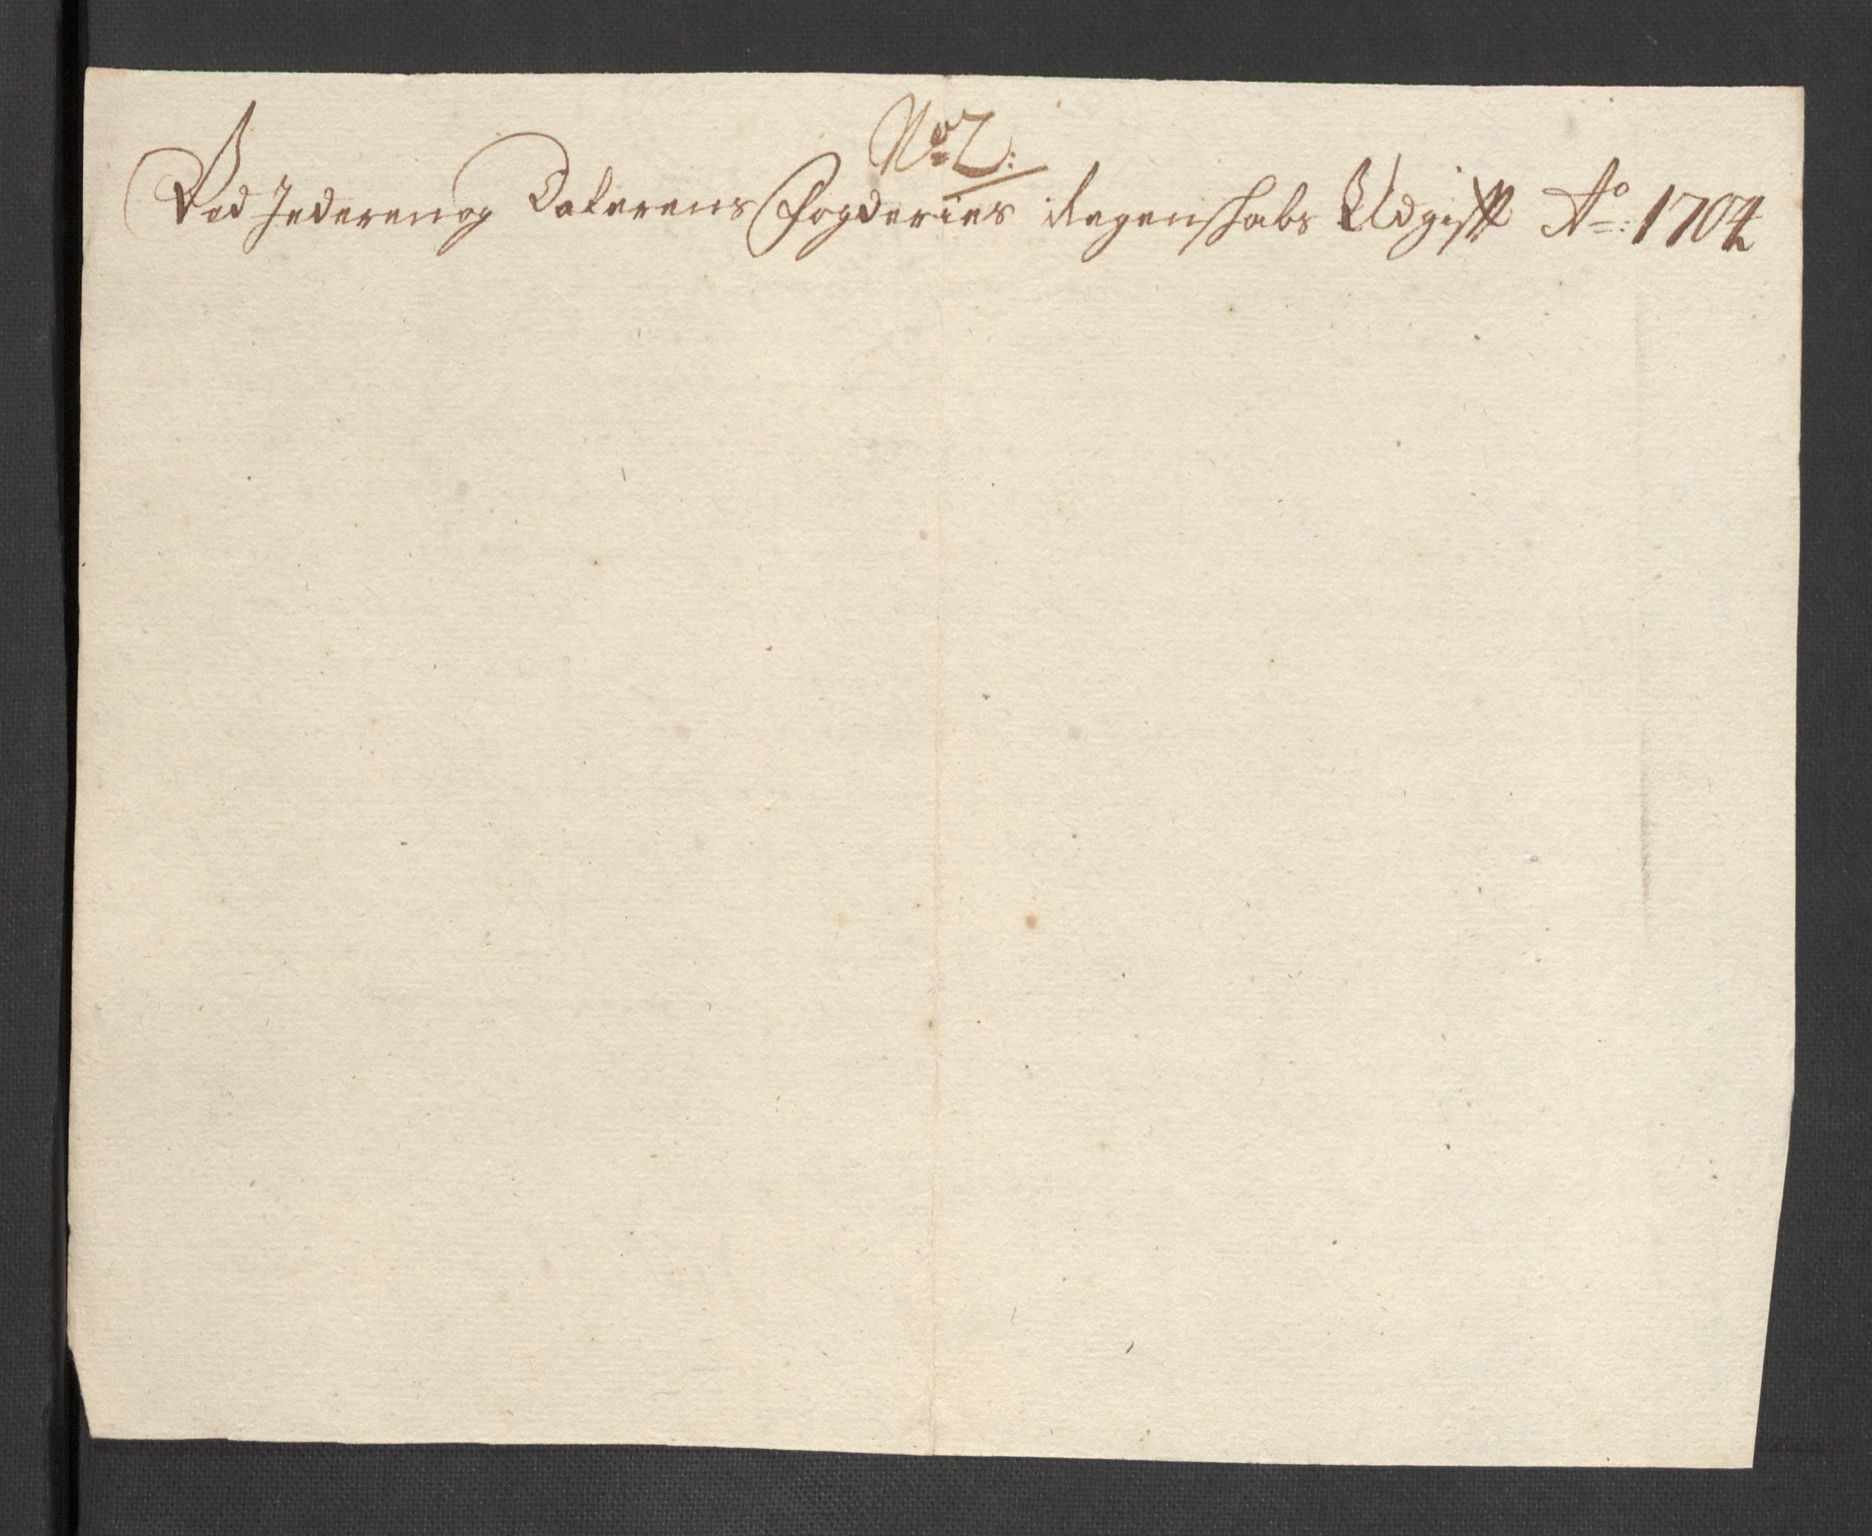 No 7:
Ved Jederen og Dalerens Fogderies Regenskabs Udgifft Ao: 1704